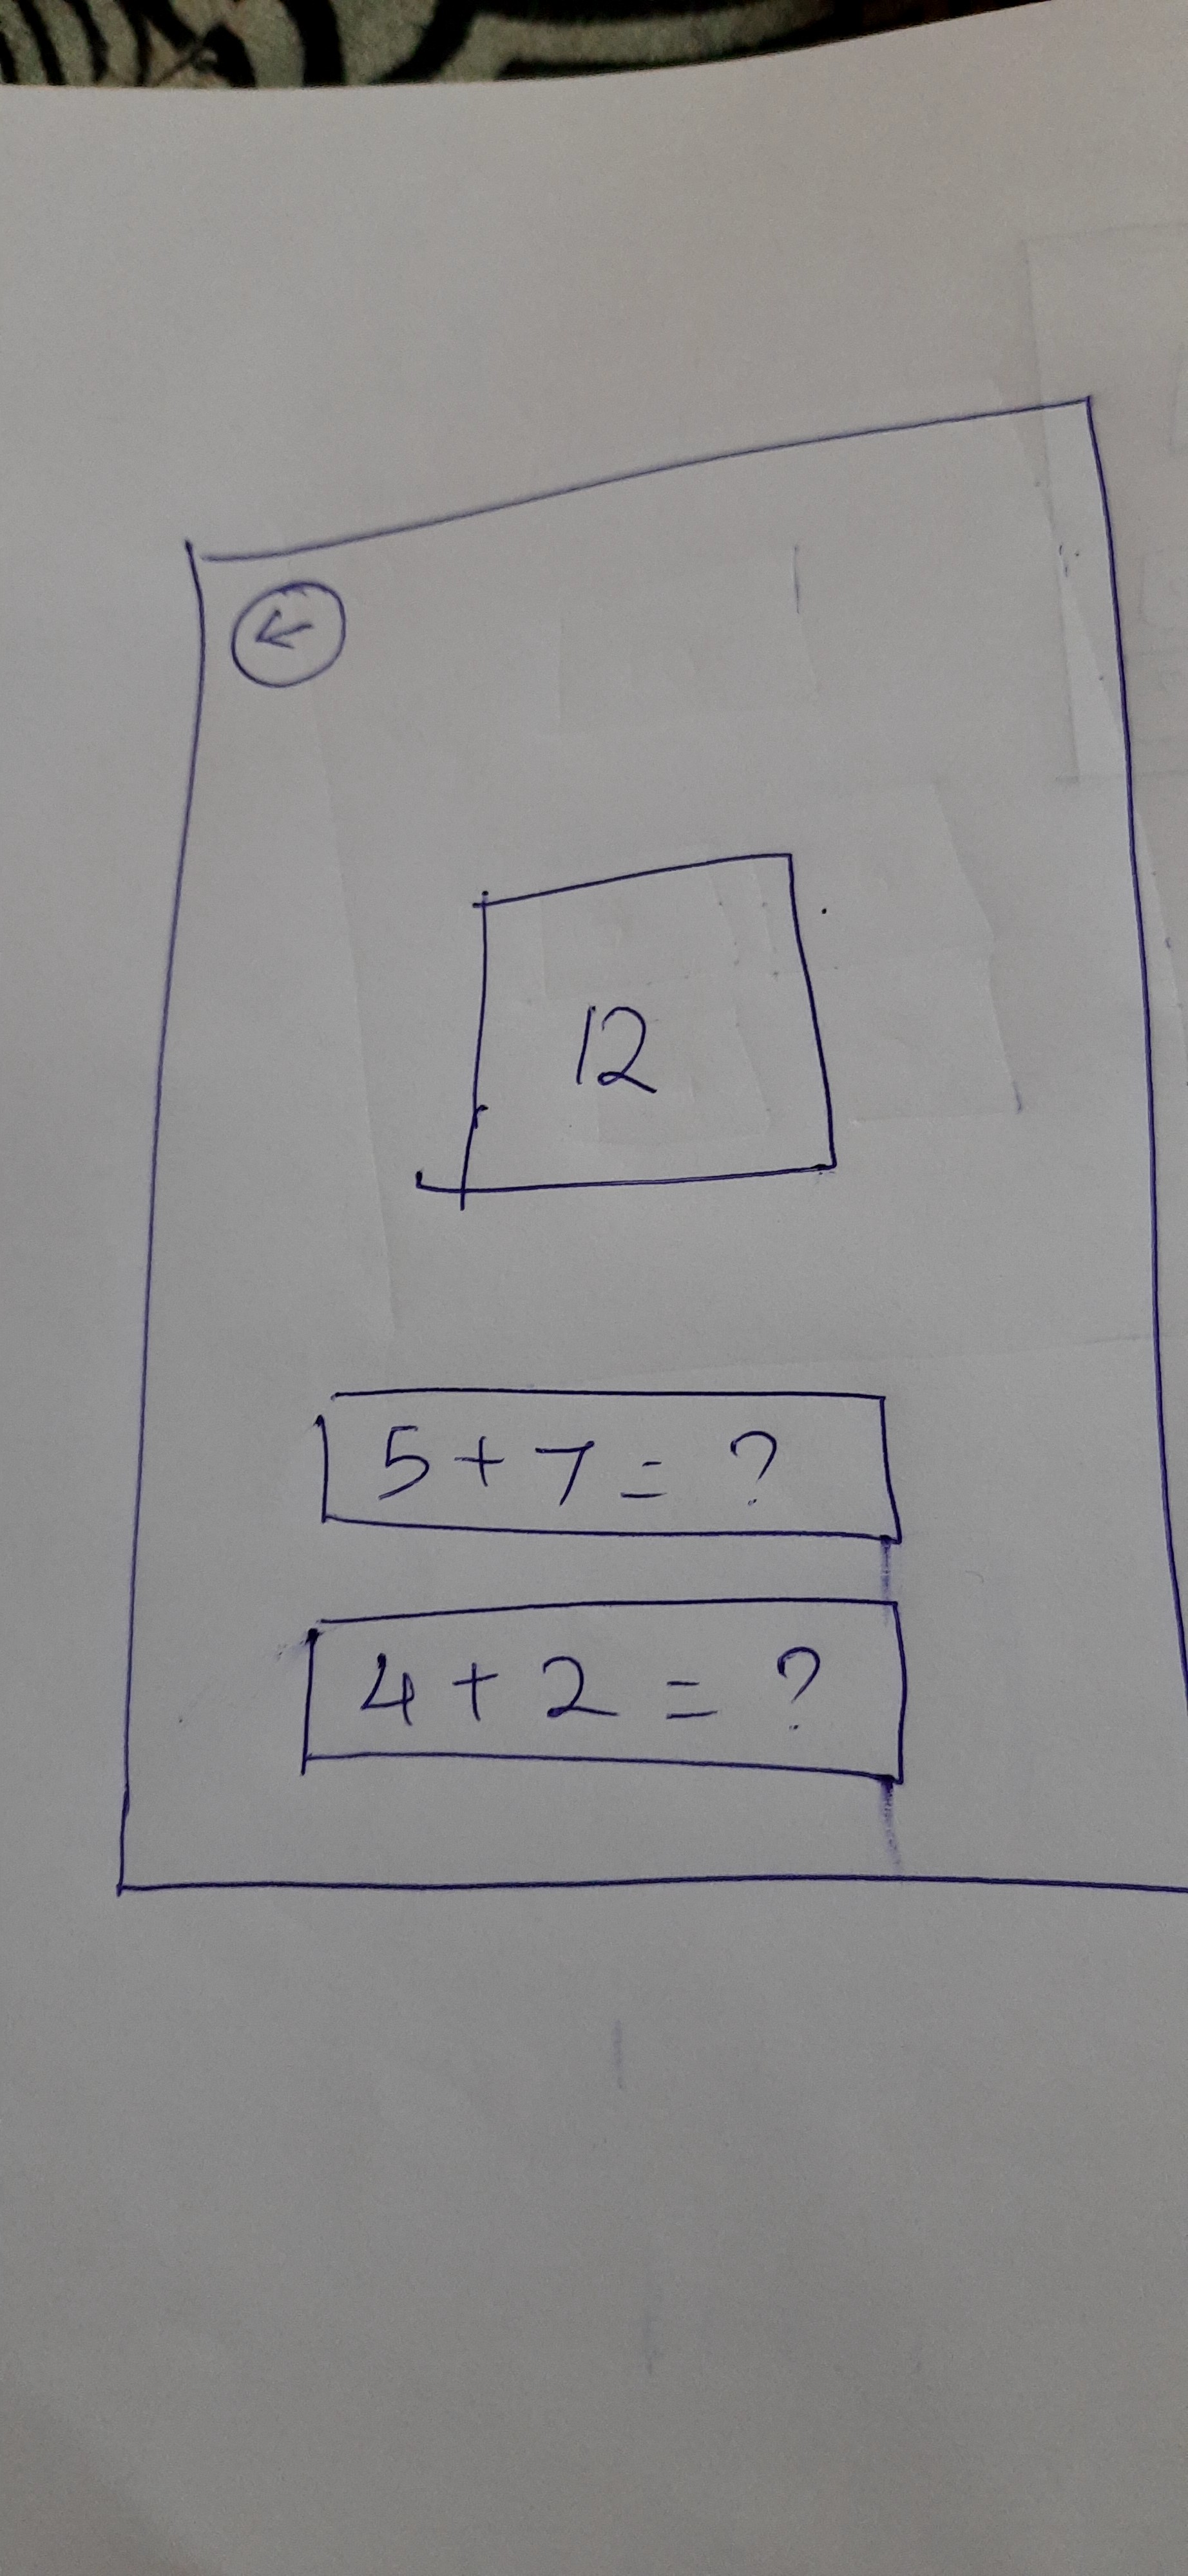 12
5 + 7 = ?
4 + 2 = ?